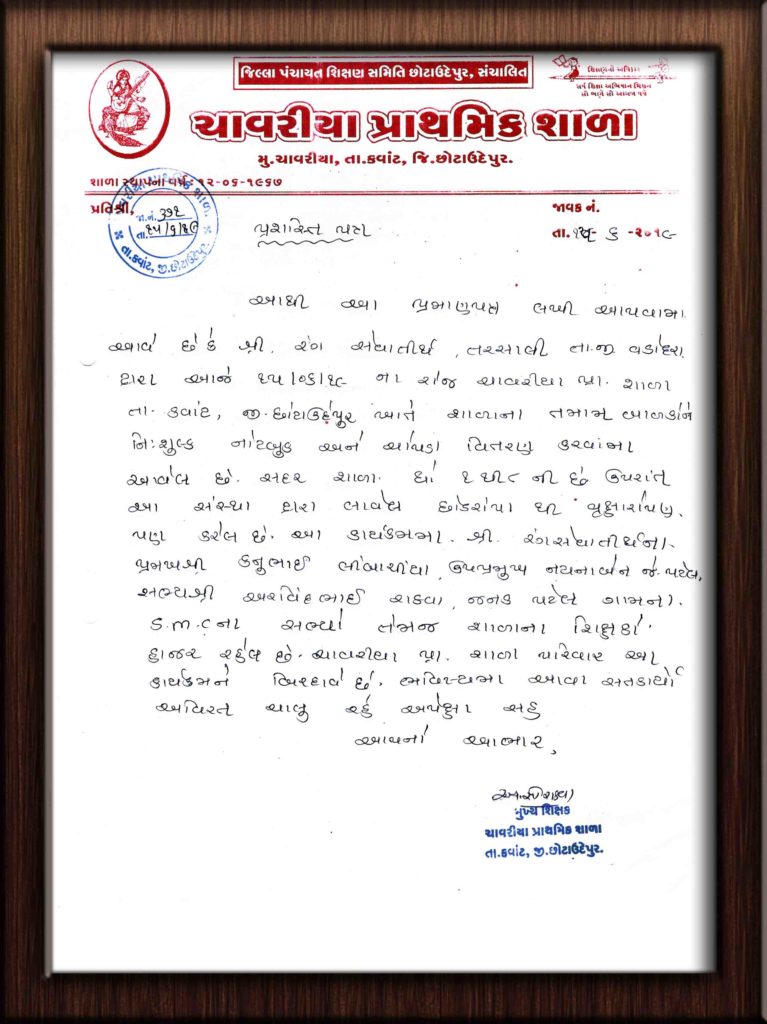 જિલ્લા પંચાયત શિક્ષણ સમિતિ છોટાઉદેપુર, સંચાલિત
સર્વ શિક્ષા અભિયાન મિશન
સૌ ભણે સૌ આગળ વધે
ચાવરીયા પ્રાથમિક શાળા
મુ.ચાવરીયા, તા.કવાંટ, જિ.છોટાઉદેપુર.
શાળા સ્થાપના વર્ષ : ૧૨-૦૬-૧૯૬૭
પ્રતિશ્રી,
જાવક નં.
જા.નં. ૩૭૨
તા. ૧૫/૬/૧૯
તા.કવાંટ, જી.છોટાઉદેપુર
પ્રશસ્તિ પત્ર
તા. ૧૫- ૬ -૨૦૧૯
આથી આ પ્રમાણપત્ર લખી આપવામા
આવે છે કે શ્રી. રંગ સેવાતીર્થ, તરસાલી તા.જી વડોદરા
દ્વારા આજે ૧૫/૦૬/૧૯ ના રોજ ચાવરીયા પ્રા. શાળા
તા. કવાંટ, જી. છોટાઉદેપુર ખાતે શાળાના તમામ બાળકોને
નિઃશુલ્ક નોટબુક અને ચોપડા વિતરણ કરવામા
આવેલ છે. સદર શાળા ધો ૧ થી ૮ ની છે ઉપરાંત
આ સંસ્થા દ્વારા લાવેલ છોડરોપા થી વૃક્ષારોપણ
પણ કરેલ છે. આ કાર્યક્રમમા. શ્રી. રંગસેવાતીર્થના
પ્રમુખશ્રી કનુભાઈ લીંબાચીયા, ઉપપ્રમુખ નયનાબેન જે. પટેલ,
સભ્યશ્રી અરવિંદભાઈ રાઠવા, જનક પટેલ ગામના
S.M.C ના સભ્યો તેમજ શાળાના શિક્ષકો
હાજર રહેલ છે. ચાવરીયા પ્રા. શાળા પરિવાર આ
કાર્યક્રમને બિરદાવે છે. ભવિષ્યમા આવા સતકાર્યો
અવિરત ચાલુ રહે અપેક્ષા સહ
આપનો આભાર,
મુખ્ય શિક્ષક
ચાવરીયા પ્રાથમિક શાળા
તા.કવાંટ, જી.છોટાઉદેપુર.